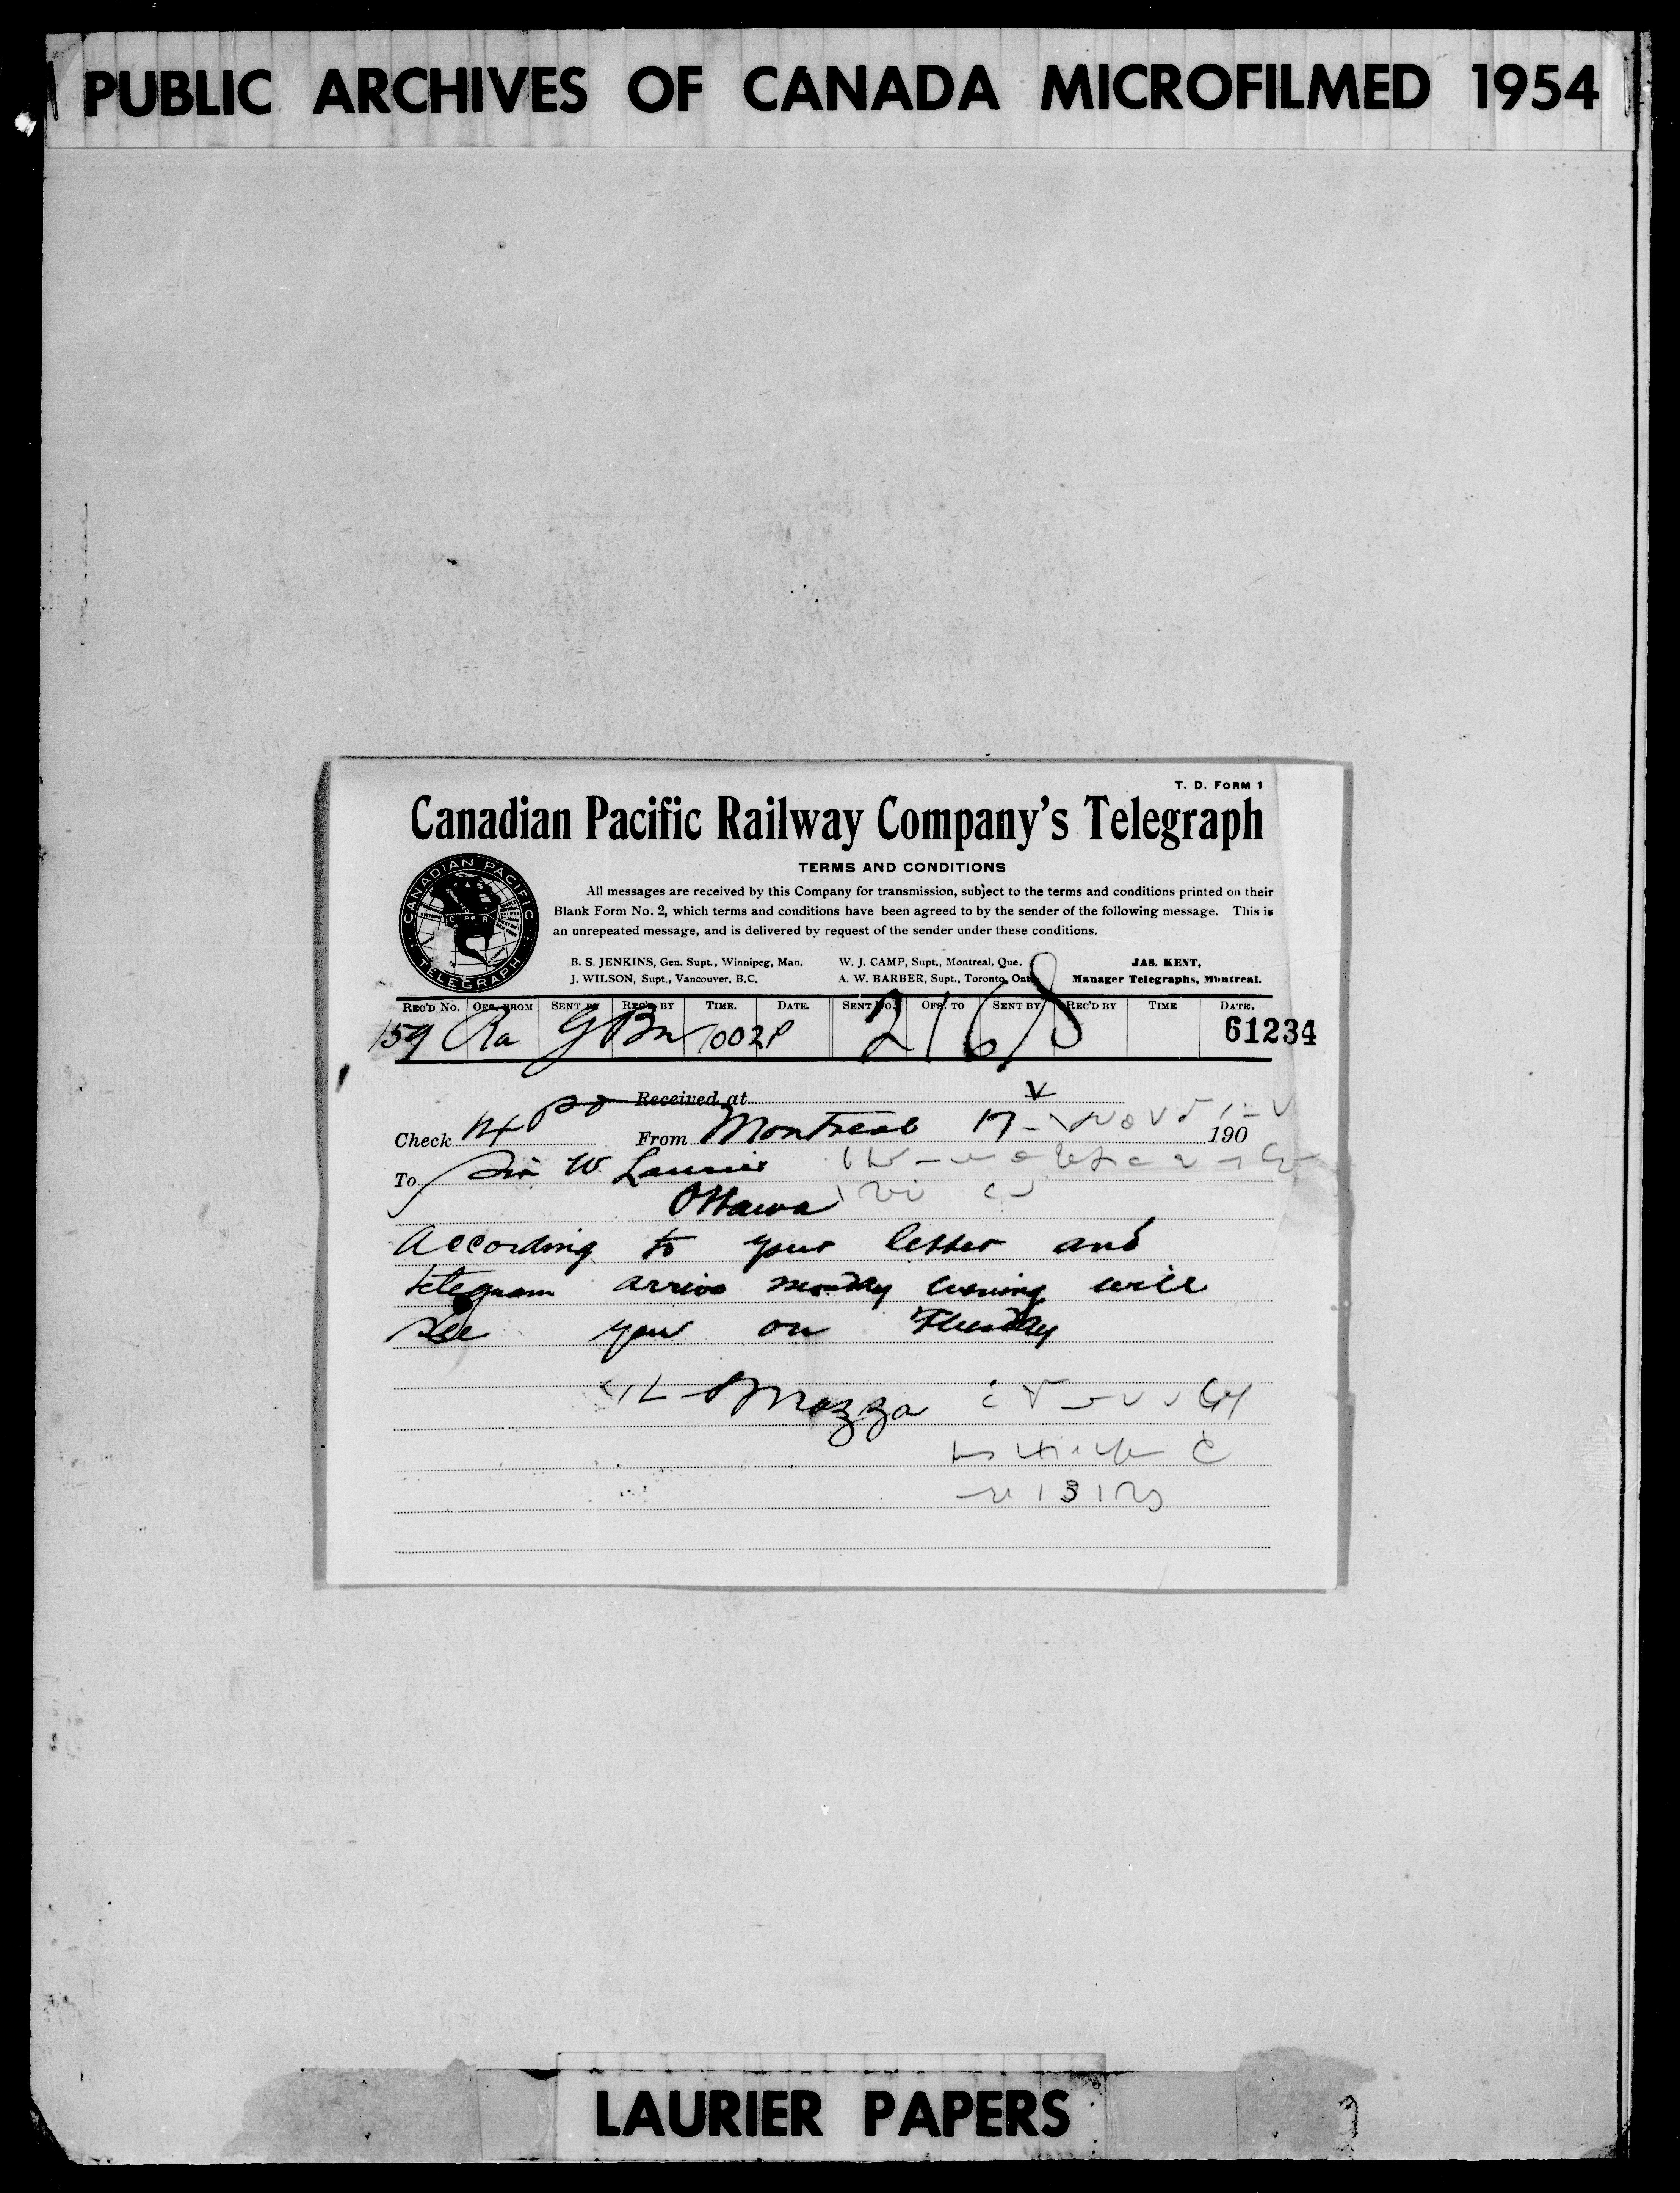 PUBLIC ARCHIVES OF CANADA MICROFILMED 1954
T. D. FORM 1
Canadian Pacific Railway Company's Telegraph
TERMS AND CONDITIONS
All messages are received by this Company for transmission, subject to the terms and conditions printed on their
Blank Form No. 2, which terms and conditions have been agreed to by the sender of the following message. This is
an unrepeated message, and is delivered by request of the sender under these conditions.
CANADIAN PACIFIC
CPR
TELEGRAPH
B. S. JENKINS, Gen. Supt., Winnipeg, Man. W. J. CAMP, Supt., Montreal, Que. JAS. KENT,
J. WILSON, Supt., Vancouver, B.C. A. W. BARBER, Supt., Toronto, Ont. Manager Telegraphs, Montreal.
REC'D No. OFS. FROM SENT BY REC'D BY TIME. DATE. SENT NO. OFS. TO SENT BY REC'D BY TIME DATE.
159 Ra 1002P 61234
Received at
Check 14 From Montreal 17 190
To Sir W. Laurier
Ottawa
According to your letter and
telegram arrive monday evening will
see you on Tuesday
Mazza
LAURIER PAPERS